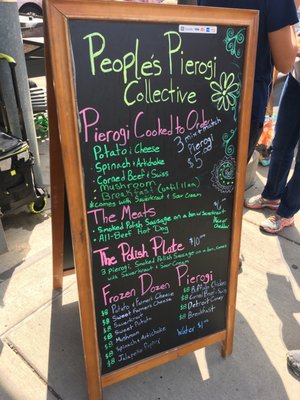 People's Pierogi
Collective
Pierogi Cooked to Order
3 mix+match
Pierogi
$5
Potato & Cheese
Spinach & Artichoke
Corned Beef & Swiss
Mushroom
Breakfast (until 11am)
comes with Sauerkraut & Sour Cream
The Meats
• Smoked Polish Sausage on a bun w/ Sauerkraut
• All-Beef Hot Dog
The Polish Plate $10
3 Pierogi, Smoked Polish Sausage on a bun, comes
with Sauerkraut & Sour Cream
Frozen Dozen Pierogi
$8 Potato & Farmer's Cheese
$8 Sweet Farmers Cheese
$8 Sauerkraut
$8 Sweet Potato
$8 Mushroom
$8 Spinach & Artichoke
$8 Jalapeño Popper
$8 Buffalo Chicken
$8 Corned Beef & Swiss
$8 Detroit Coney
$8 Breakfast
Water $1